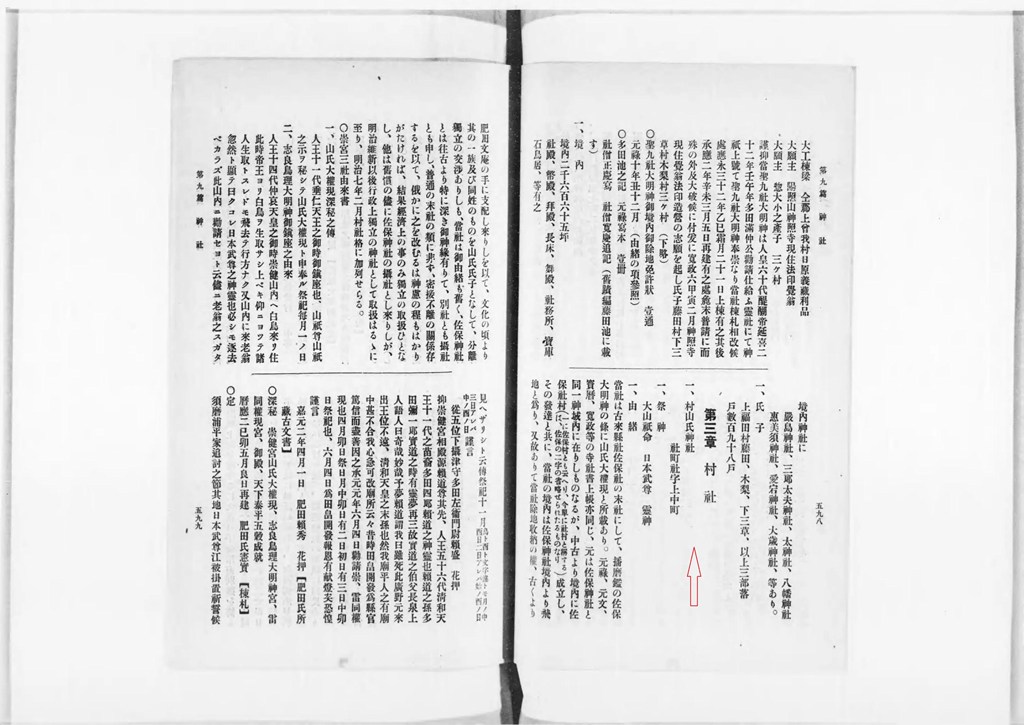 第九篇　神社
大工棟梁　仝郡上曾我村日原義藏利品
大願主　陽照山神照寺現住法印覺翁
大願主　惣大小之產子　三ヶ村
謹抑當聖九社大明神は人皇六十代醍醐帝延喜二
十二年壬午年多田滿仲公勸請仕給ふ靈社にて神
祇上號て聖九社大明神奉崇なり當社棟札相改候
處應永三十二年乙巳霜月二十一日上棟有之其後
承應二年辛未三月五日再建有之處尙末普請に而
殊の外及大破候に付爰に寬政六甲寅二月神照寺
現住覺翁法印造營の志願を起し氏子藤田村下三
草村木梨村三ヶ村　（下略）
〇聖九社大明神御境內御除地免許狀　壹通
元祿十年丑十二月　（由緖の項參照）
〇多田池之記　元祿寫本　壹冊
社僧正慶寫　社僧寬慶追記（舊蹟編藤田池に載
す）
一、境　內
境內二千六百六十五坪
社殿、幣殿、拜殿、長床、舞殿、社務所、寶庫
石鳥居、等有之
五九八
境內神社に
嚴島神社、三郞太夫神社、太神社、八幡神社
惠美須神社、愛宕神社、大歲神社、等あり。
一、氏　子
上福田村藤田、木梨、下三草、以上三部落
戶數百九十八戶
第三章　村　社
一、村山氏神社
社町社字上中町
一、祭　神
大山祇命　日本武尊　靈神
一、由　緖
當社は古來縣社佐保社の末社にして、播磨鑑の佐保
大明神の條に山氏大權現と所載あり。元祿、元文、
寶曆、寬政等の寺社書上帳亦同じ、元は佐保神社と
同一神域內に在りしものなるが、中古より境內に佐
保社村（に佐保村とも云へり、今單に社村と稱するは、佐保の二字の省略せられたるものなり）成立し、
その發達と共に、當社の境內は佐保神社境內より飛
地と爲り、又故ありて當社除地收納の權、古くより
肥田文庵の手に支配し來りしを以て、文化の頃より
其の一族及び同姓のものを山氏氏子となして、分離
獨立の交涉ありしも、當社は御由緖も舊く、佐保神社
とは往古より特に深き御神緣有りて、別社とも攝社
とも申し、普通の末社の類に非ず、密接不離の關係存
するを以て、俄かに之を改むるは神慮の程もはかり
がたければ、結果經濟上の事のみ獨立の取扱ひとな
し、他は舊慣の儘に佐保神社の攝社とし來りしが、
明治維新以後行政上獨立の神社として取扱はるゝに
至り、明治七年二月村社格に加列せらる。
〇崇宮三社由來書
一、山氏大權現深秘之傳
人王十一代垂仁天王之御時御鎭座也、山祇尊山祇
之示ヲ秘シテ山氏大權現ト申奉ル祭祀每月一ノ日
二、志良鳥理大明神御鎭座之由來
人王十四代仲哀天皇之御時崇健山內へ白鳥來リ住
此時帝王ヨリ白鳥ヲ生取サシ上ベキ仰ニヨツテ諸
人生取トスレドモ飛去テ行方ナク又山內に來老翁
忽然ト顯テ曰クコレ日本武尊之神靈也必シモ逐去
ベカラズ此山內ニ勸請セヨト云儘ニ老翁之スガタ
第九篇　神社
見へザリシト云傳祭祀十一月
謹言
從五位下攝津守多田左衛門尉賴盛　花押
抑崇健宮相殿源賴道尊其先、人王五十六代淸和天
王十一代之苗裔多田四郞賴道之神靈也賴道之孫多
田彌一郞實道之時有靈夢再三故實道之伯父長泉上
人語人曰奇哉妙哉予夢賴道謂我曰雖死此廣野元來
出王位不遠、淸和天皇之末孫也然我廟平人之有廟
中甚不合我心急可改廟所云々昔時田畠開發爲縣官
篤信而盡善因之永元元年六月四日勸請崇、雷同權
現也四月卯日祭日月中卯日有二日初日有三日中卯
日祭祀也、六月四日爲田畠開發報恩有獻燈矣恐惶
謹言
嘉元二年四月一日　肥田賴秀　花押【肥田氏所
藏古文書】
〇深秘　崇健宮山氏大權現、志良鳥理大明神宮、雷
同權現宮、御殿、天下泰平五穀成就
曆應二己卯五月良日再建　肥田氏憲實【棟札】
〇定
須磨浦平家追討之節其地日本武尊江被掛置祈誓候
五九九